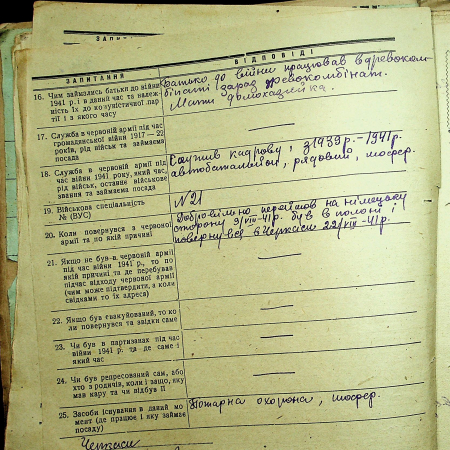 ЗАПИТАННЯ
ВІДПОВІДІ
16. Чим займались батьки до війни
1941 р. і в даний час та належ-
ність їх до комуністичної пар-
тії і з якого часу
Батько до війни працював в древоком-
бінаті зараз древокомбінат.
Мати домохазяйка.
17. Служба в червоній армії під час
громадянської війни 1917—22
років, рід військ та займаема
посада
18. Служба в червоній армії під
час війни 1941 року, який час,
рід військ, останнє військове
звання та займаема посада
Служив кадрову, з 1939 р.-1941 р.
автобаталіон, рядовий, шофер.
19. Військова спеціальність
№ (ВУС)
N 21
20. Коли повернувся з червоної
армії та по якій причині
Добровільно перейшов на німецьку
сторону 9/VIII-41 р. був в полоні і
повернувся в Черкаси 22/VIII-41 р.
21. Якщо не був в червоній армії
під час війни 1941 р., то по
якій причині та де перебував
підчас відходу червоної армії
(чим може підтвердити, а коли
свідками то їх адреса)
22. Якщо був евакуйований, то ко-
ли повернувся та звідки саме
23. Чи був в партизанах під час
війни 1941 р. та де саме і
який час
24. Чи був репресований сам, або
хто з родичів, коли і защо, яку
мав кару та чи відбув її
25. Засоби існування в даний мо-
мент (де працює і яку займає
посаду)
Пожарна охорона, шофер.
Черкаси